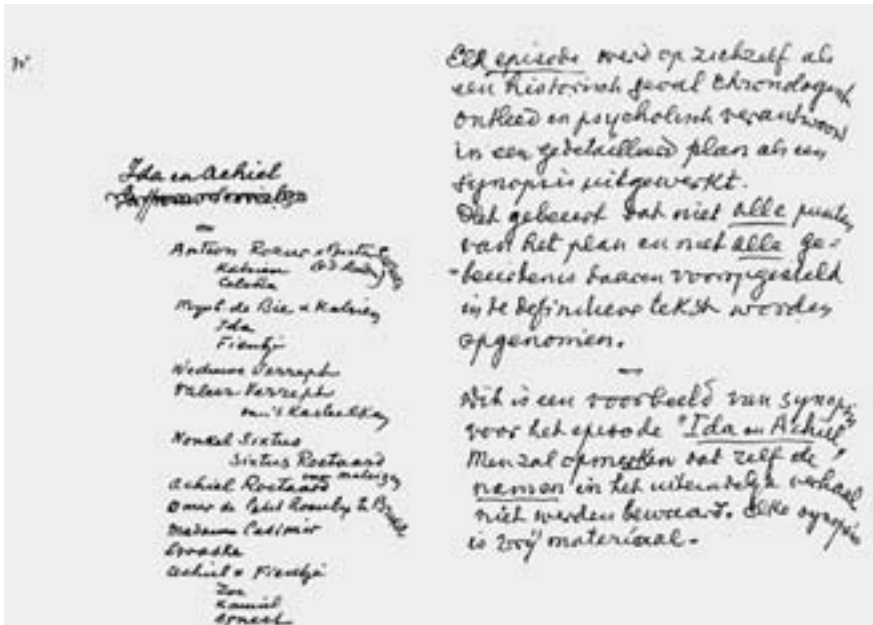 W.
Ida en Achiel
Antoon
Katrien
Celeste
Myst de Bie & Katrien
Ida
Fientje
Weduwe Verreph
Valeer Verreph
van 't Kasteeltje
Nonkel Sixtus
Sixtus Roetaard
Achiel Roetaard
Omer de
Madame Casimir
Achiel & Fientje
Zoe
Kamiel
Ernest
Een episode werd op zichzelf als
een historisch geval chronologisch
ontleed en psychologisch verantwoord
in een gedetailleerd plan als een
synopsis uitgewerkt.
Het gebeurt dat niet alle punten
van het plan en niet alle ge-
beurtenis daarin vooropgesteld
in de definitieve tekst worden
opgenomen.
Dit is een voorbeeld van synopsis
voor het episode "Ida en Achiel"
Men zal opmerken dat zelf de
namen in het uiteindelijk verhaal
niet werden bewaard. Elke synopsis
is vrij materiaal.